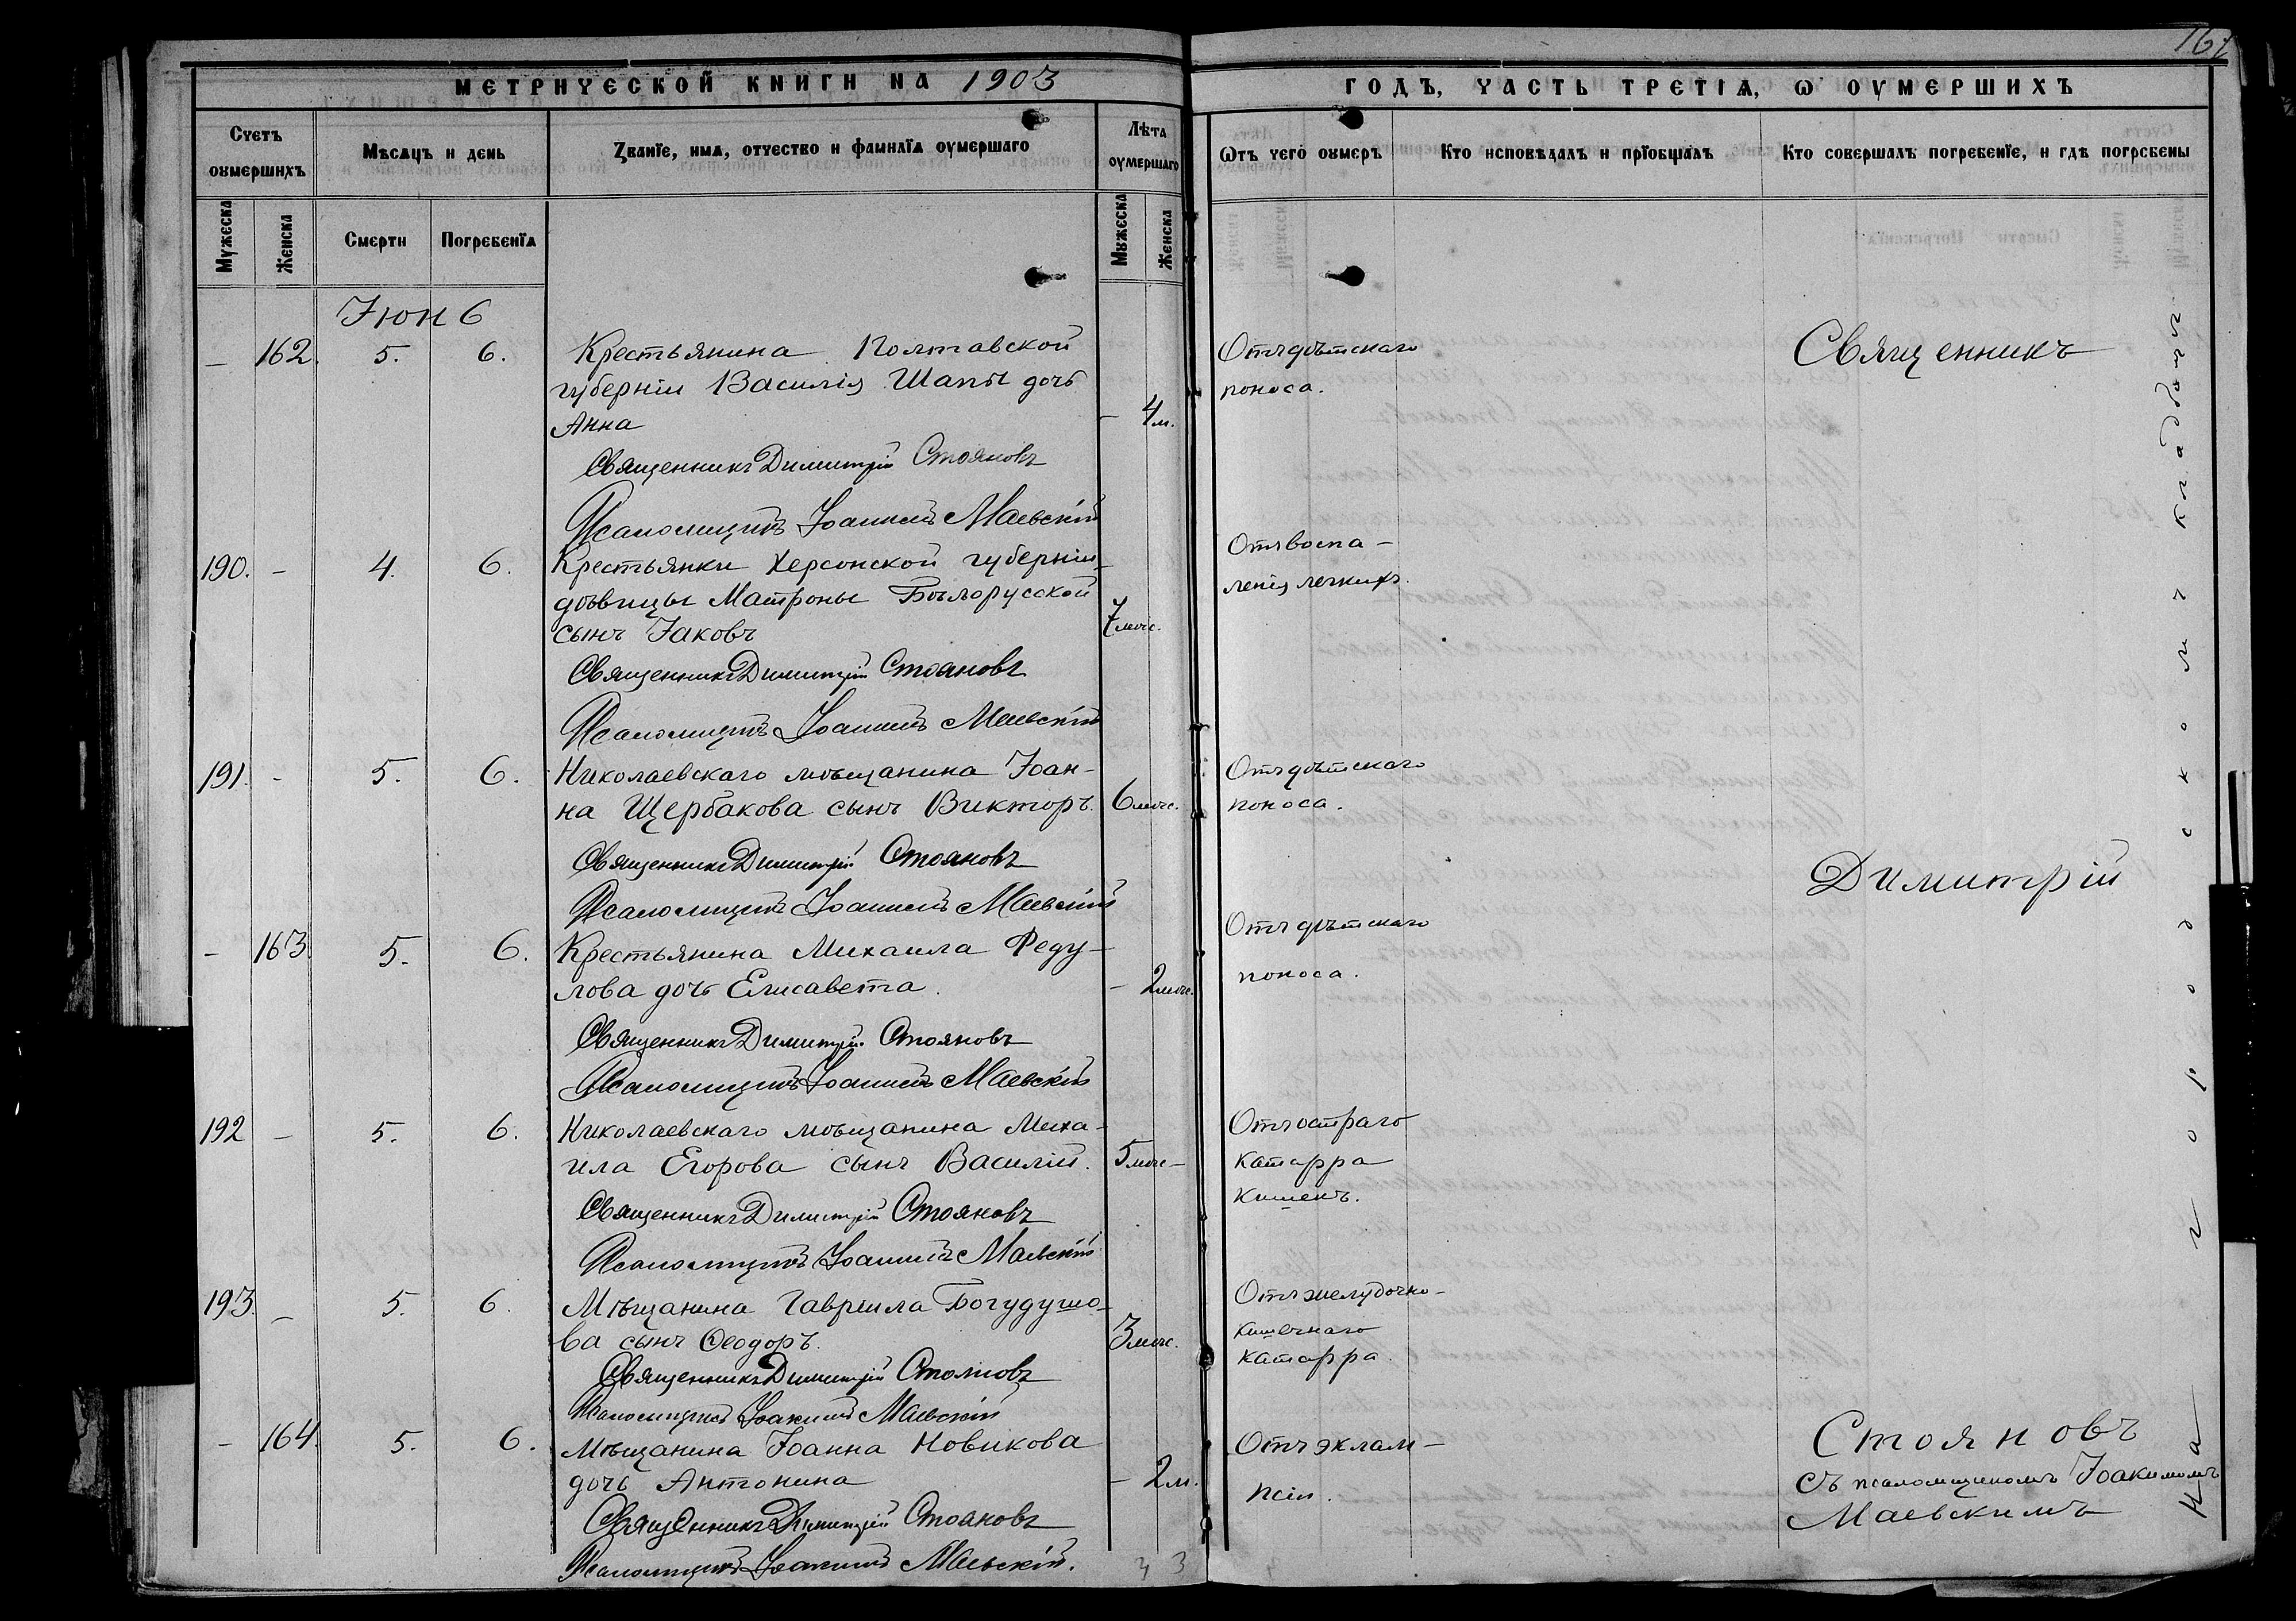 МЕТРИЧЕСКОЙ КНИГИ НА 1903
Счетъ оумершихъ
Мѣсяцъ и день
Званїе, имя, отчество и фамилїа оумершаго
Лѣта оумершаго
Мужеска
Женска
Смерти
Погребенїа
Мужеска
Женска
Іюнь
— 162. 5. 6. Крестьянина Полтавской
губерніи Василія Шапы дочь
Анна — 4 м.
Священникъ Димитрій Стояновъ
Псаломщикъ Іоакимъ Маевскій
190. — 4. 6. Крестьянки Херсонской губерніи
дѣвицы Матроны Бѣлорусской
сынъ Іаковъ 7 мѣс.
Священникъ Димитрій Стояновъ
Псаломщикъ Іоакимъ Маевскій
191. - 5. 6. Николаевскаго мѣщанина Іоан-
на Щербакова сынъ Викторъ. 6 мѣс.
Священникъ Димитрій Стояновъ
Псаломщикъ Іоакимъ Маевскій
— 163. 5. 6. Крестьянина Михаила Феду-
лова дочь Елисавета. — 2 мѣс.
Священникъ Димитрій Стояновъ
Псаломщикъ Іоакимъ Маевскій
192 — 5. 6. Николаевскаго мѣщанина Миха-
ила Егорова сынъ Василій. 5 мѣс —
Священникъ Димитрій Стояновъ
Псаломщикъ Іоакимъ Маевскій
193. — 5. 6. Мѣщанина Гавріила Богудушо-
ва сынъ Ѳеодоръ. 3 мѣс.
Священникъ Димитрій Стояновъ
Псаломщикъ Іоакимъ Маевскій
— 164. 5. 6. Мѣщанина Іоанна Новикова
дочь Антонина — 2 м.
Священникъ Димитрій Стояновъ
Псаломщикъ Іоакимъ Маевскій.
4 3
ГОДЪ, ЧАСТЬ ТРЕТІЯ, Ѡ ОУМЕРШИХЪ
Ѿтъ чего оумеръ
Кто исповѣдалъ и прїобщалъ
Кто совершалъ погребенїе, и гдѣ погребены
Отъ дѣтскаго
поноса.
Отъ воспа-
ленія легкихъ.
Отъ дѣтскаго
поноса.
Отъ дѣтскаго
поноса.
Отъ остраго
катарра
кишекъ.
Отъ желудочно-
кишечнаго
катарра.
Отъ эклам-
псіи.
Священникъ
Димитрій
Стояновъ
съ псаломщикомъ Іоакимомъ
Маевскимъ
На городскомъ кладбищѣ